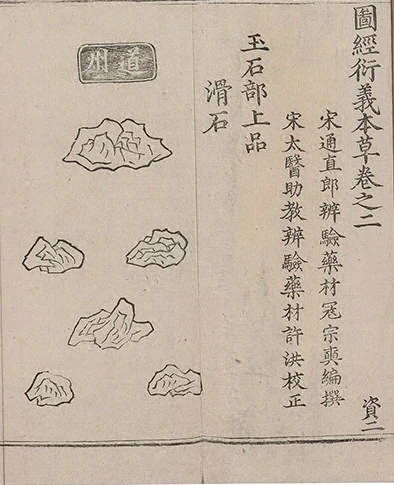 圖經衍義本草卷之二
宋通直郎辨驗藥材冦宗奭編撰
宋太醫助教辨驗藥材許洪校正
資二
玉石部上品
滑石
道州